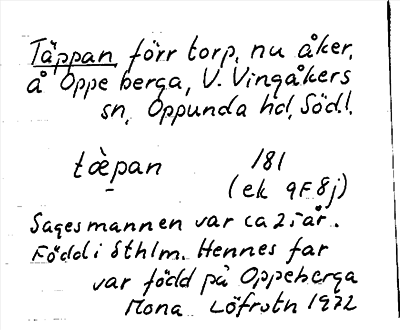 Täppan förr torp, nu åker,
å Oppeberga, V. Vingåkers
sn, Oppunda hd, Södl.
tæ̀pan 181
(ek 9F8j)
Sagesmannen var ca 25 år.
Född i Sthlm. Hennes far
var född på Oppeberga
Mona Löfroth 1972